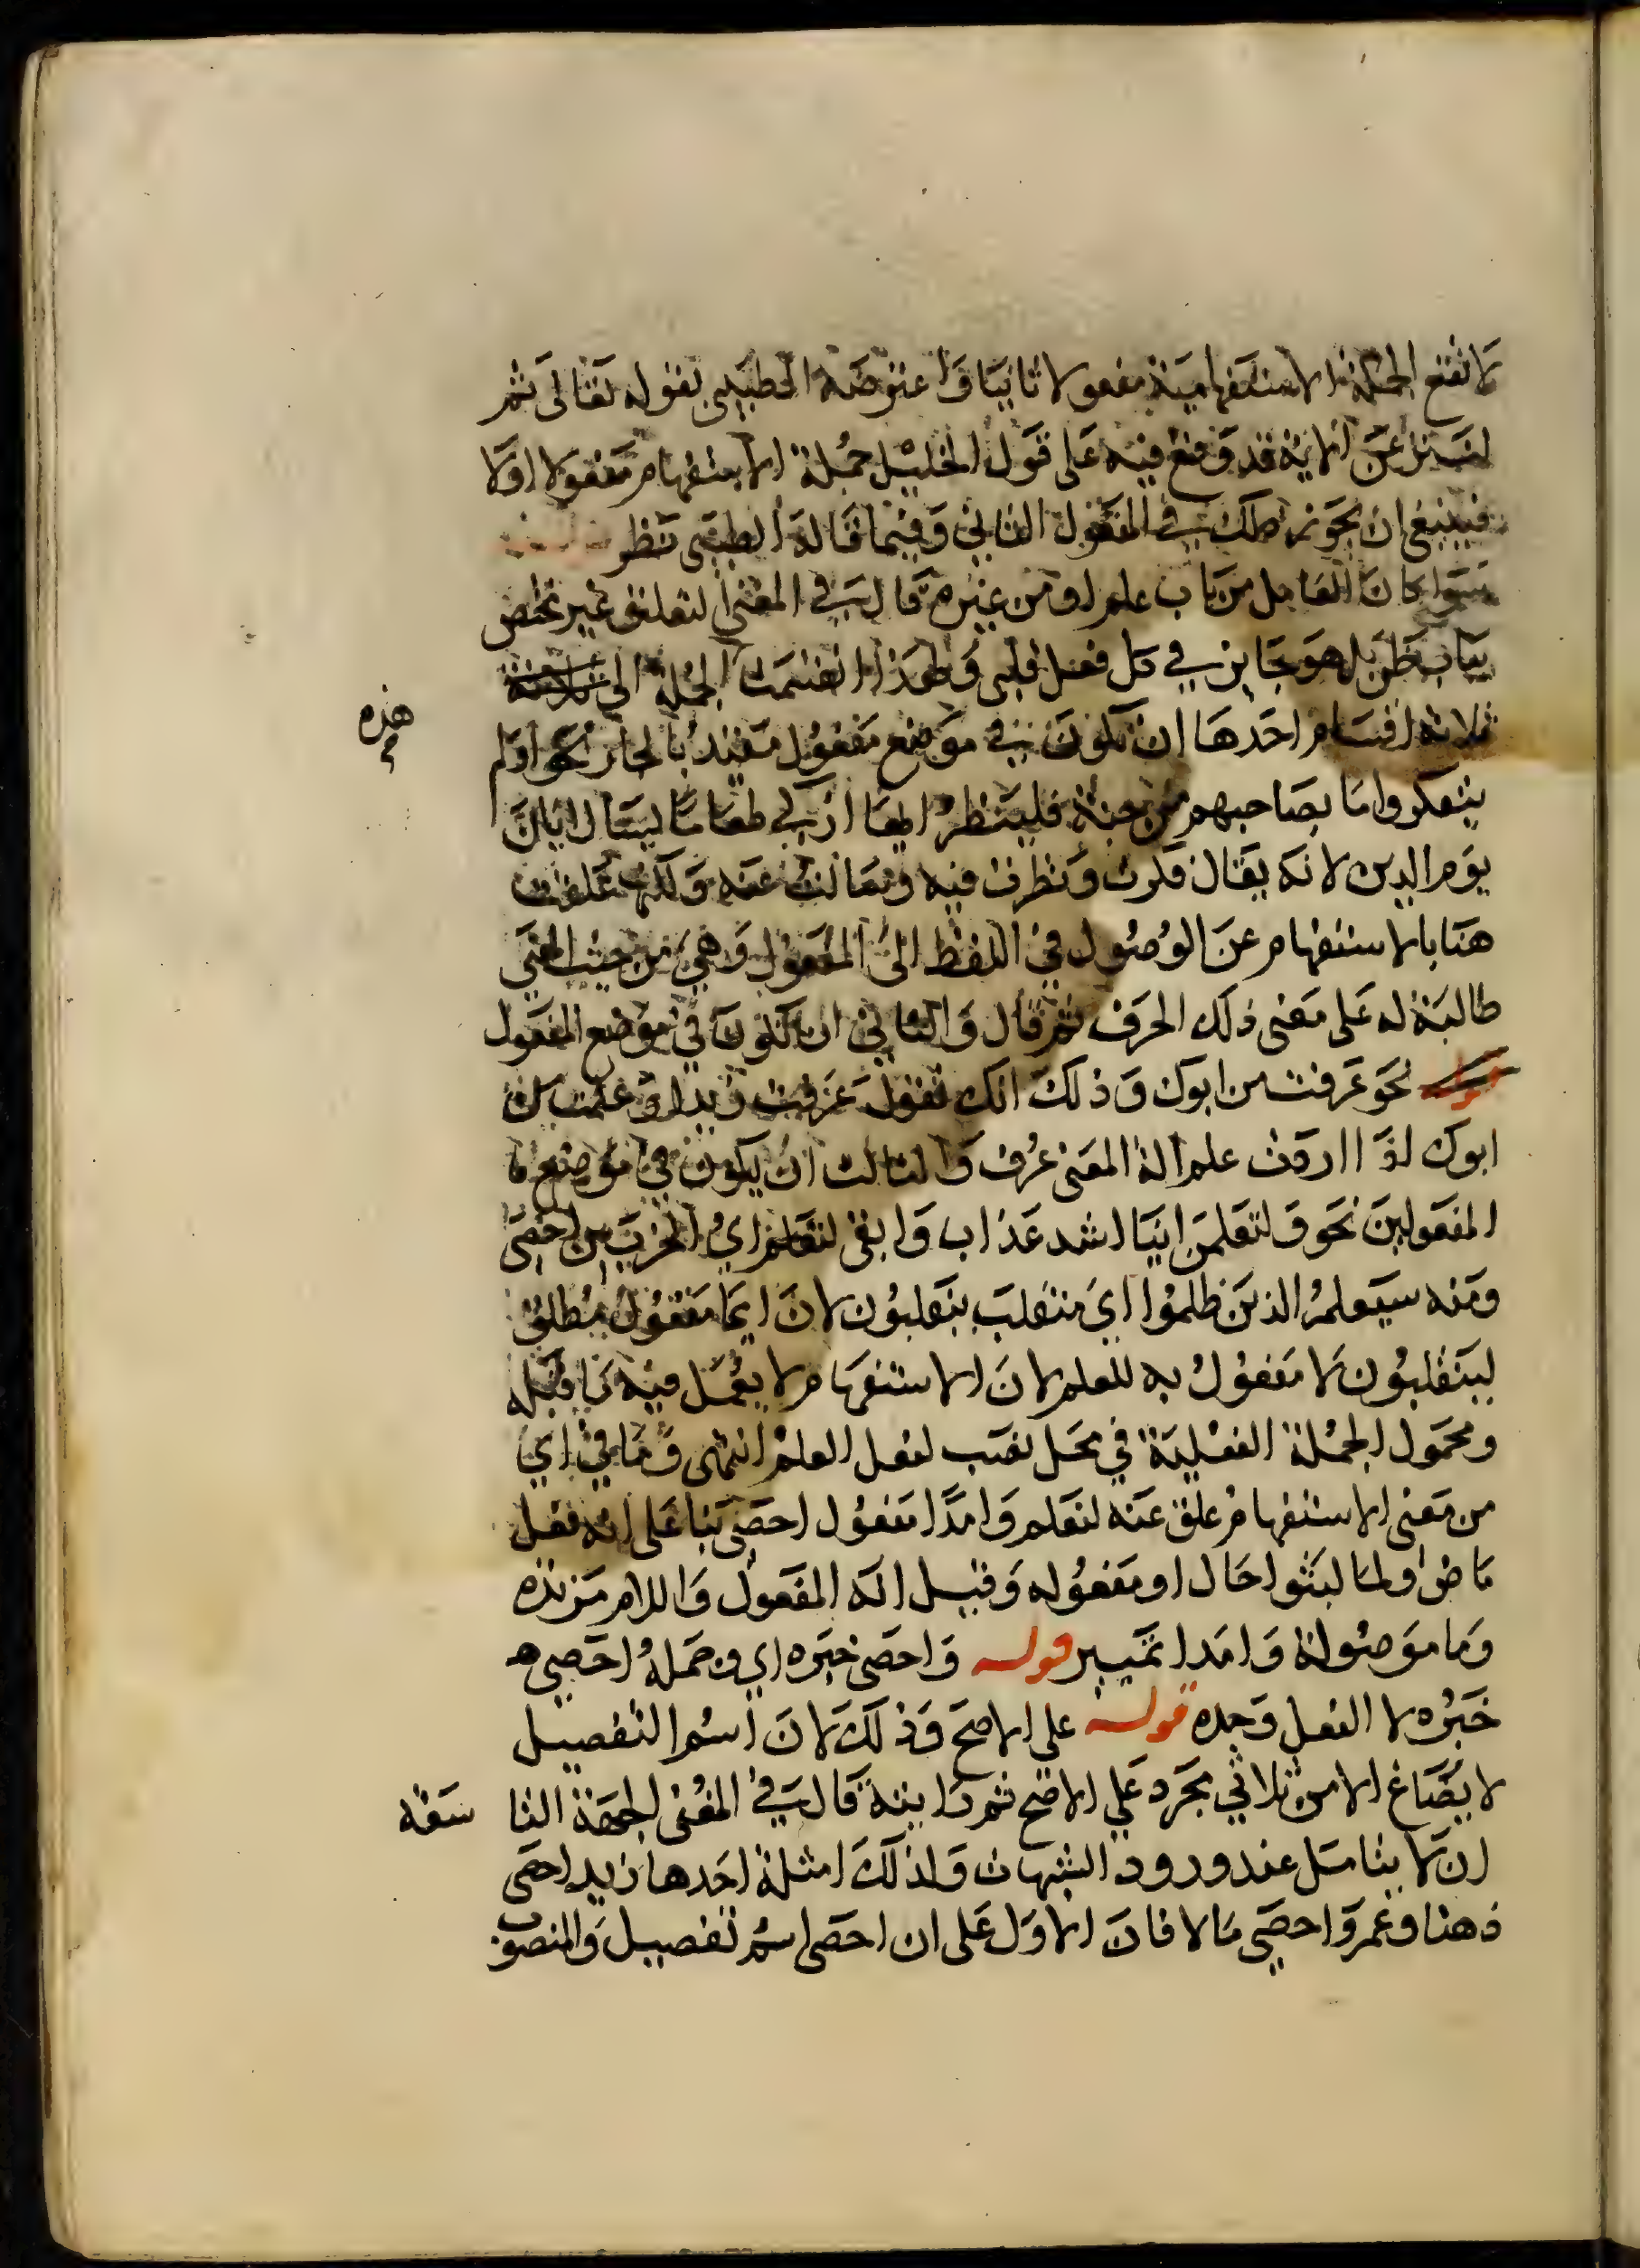 لا تقع الجملة الاستفهامية مفعولا ثانيا واعترضه الطيبي بقوله تعالى ثم
لننزعن الاية قد وقع فيه على قول الخليل جملة الاستفهام مفعولا اولا
فينبغي ان يجوز ذلك في المفعول الثاني وفيما قاله الطيبي نظر
سوا كان العامل من باب علم او من غيره قال في المغني التعليق غير مختص
بباب ظن بل هو جايز في كل فعل قلبي ولهذا انقسمت الجملة الى
هذه
ثلاثة اقسام احدها ان تكون في موضع مفعول مقيد بالجار نحو اولم
يتفكروا ما بصاحبهم من جنة فلينظر ايها ازكى طعاما يسال ايان
يوم الدين لانه يقال فكرت ونظرت فيه وسالت عنه ولكنها علقت
هنا بالاستفهام عن الوصول في اللفظ الى المفعول وهي من حيث المعنى
طالبة له على معنى ذلك الحرف ثم قال والثاني ان تكون في موضع المفعول
نحو عرفت من ابوك وذلك انك تقول عرفت زيدا وعلمت من
ابوك اذا اردت علم الذ المعنى عرف والثالث ان يكون في موضع ما
المفعولين نحو ولتعلمن اينا اشد عذاب وابقى لنعلم اي الحزبين احصى
ومنه سيعلم الذين ظلموا اي منقلب ينقلبون لان ايا مفعول مطلق
لينقلبون لا مفعول به للعلم لان الاستفهام لا يعمل فيه ما قبله
ومحمول الجملة الفعلية في محل نصب لفعل العلم انتهى وما في اي
من معنى الاستفهام علق عنه لنعلم وامدا مفعول احصى بنا على انه فعل
ماض ولما لبثوا حال او مفعوله وقيل انه المفعول واللام مزيده
وما موصولة وامدا تمييز قوله واحصى خبره اي وجملة احصى
خبره لا الفعل وحده قوله على الاصح وذلك لان اسم التفصيل
لا يصاغ الا من ثلاثي مجرد على الاصح ثم رايته قال في المغني الجهة التا سعه
ان لا يتامل عند ورود الشبهات ولذلك امثلة احدها زيد احصى
ذهنا وعمرو احصى مالا فان الاول على ان احصى اسم تفصيل والمنصوب